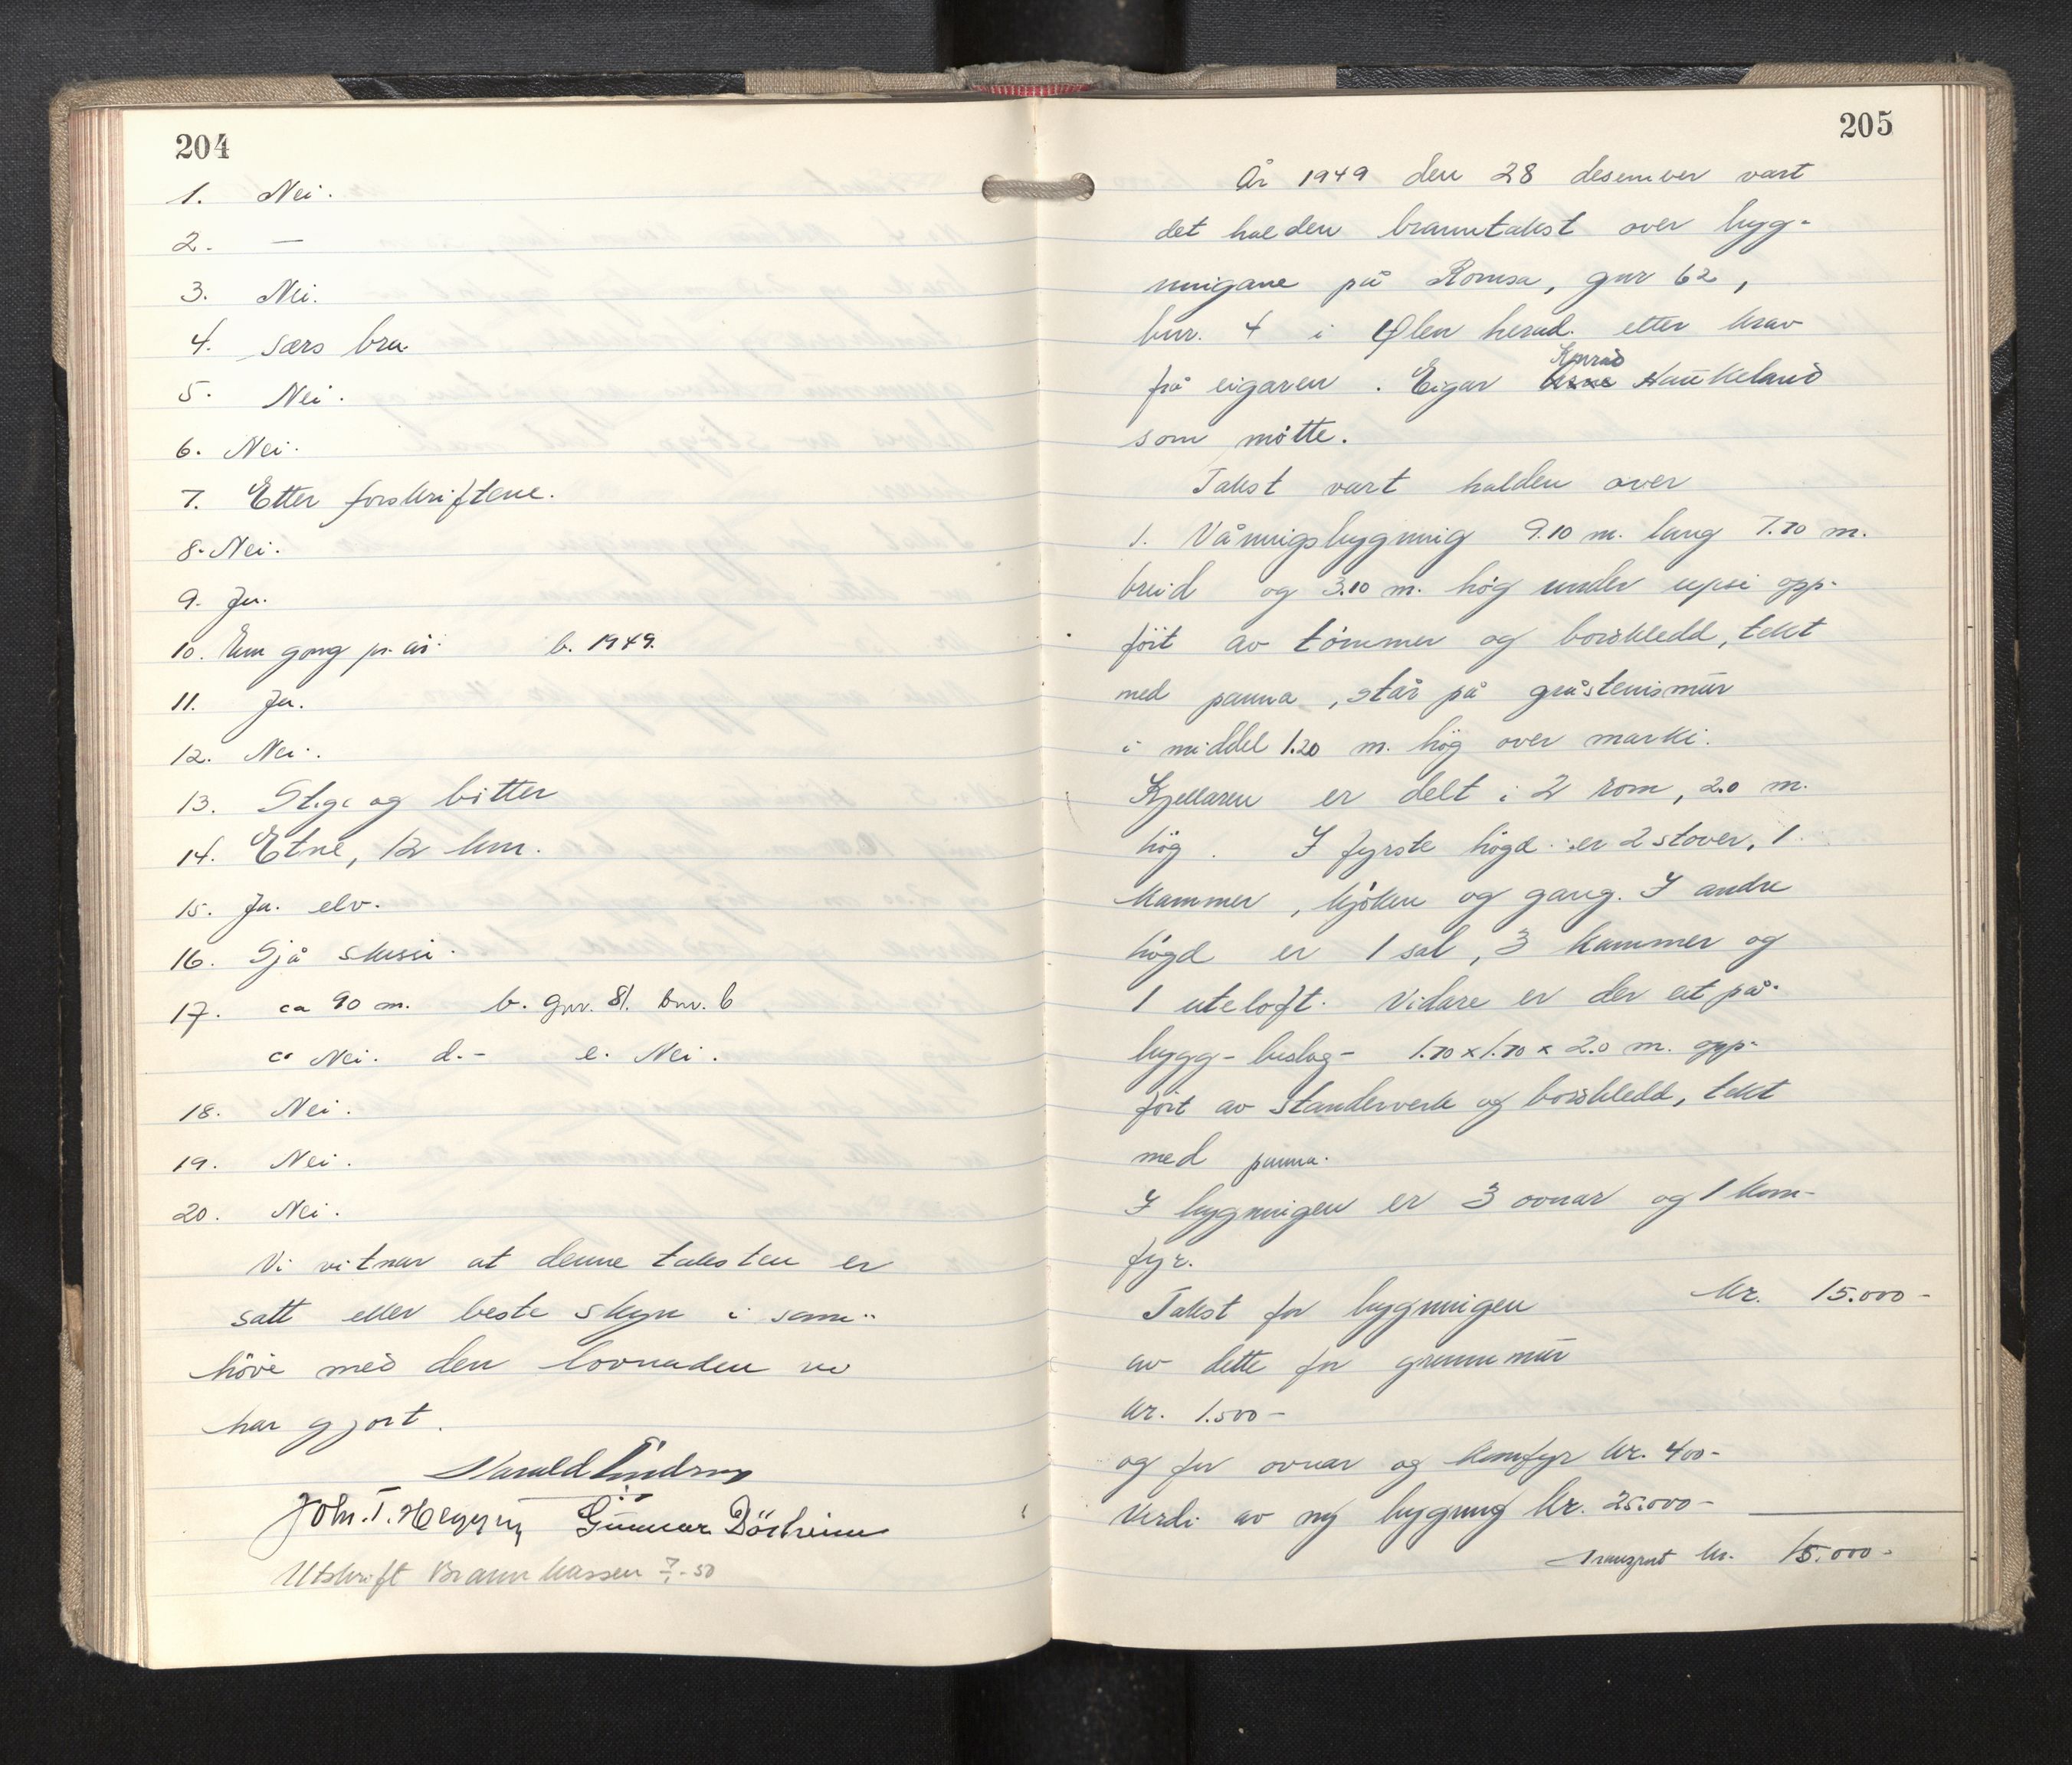 204
1. Nei.
2. —
3. Nei.
4. særs bra
5. Nei.
6. Nei.
7. Etter forskriftene.
8. Nei.
9. Ja.
10. Ein gong pr. år. b. 1949.
11. Ja.
12. Nei.
13. Stige og bøtter
14. Etne, 12 km.
15. Ja. elv.
16. Sjå skissi.
17. ca 90 m. b. gnr. 81. bnr. 6
c. Nei. d. - e. Nei.
18. Nei.
19. Nei.
20. Nei.
Vi vitnar at denne taksten er
satt etter beste skyn i sam-
høve med den lovnaden vi
har gjort.
Harald
John. T. Gunnar
Utskrift Brannkassen 7/1-50
205
År 1949 den 28 desember vart
det halden branntakst over byg-
ningane på Romsa, gnr 62,
bnr. 4 i Ølen herad. etter krav
frå eigaren. Eigar Konrad Haukeland
som møtte.
Takst vart halden over
1. Våningsbygning 9.10 m. lang 7.70 m.
breid og 3.10 m. høg under upsi opp-
ført av tømmer og bordkledd, tekt
med panna, står på gråsteinsmur
i middel 1.20 m. høg over marki.
Kjellaren er delt i 2 rom, 2.0 m.
høg. I fyrste høgd er 2 stover, 1
kammer, kjøken og gang. I andre
høgd er 1 sal, 3 kammer og
1 uteloft. Vidare er der eit på-
bygg - bislag - 1.70 x 1.70 x 2.0 m. opp-
ført av standerverk og bordkledd, tekt
med panna.
I bygningen er 3 ovnar og 1 kom-
fyr.
Takst for bygningen kr. 15.000 -
av dette for grunnmur
kr. 1.500 -
og for ovnar og komfyr kr. 400 -
Verdi av ny bygning kr. 25.000 -
Transport kr. 15.000 -